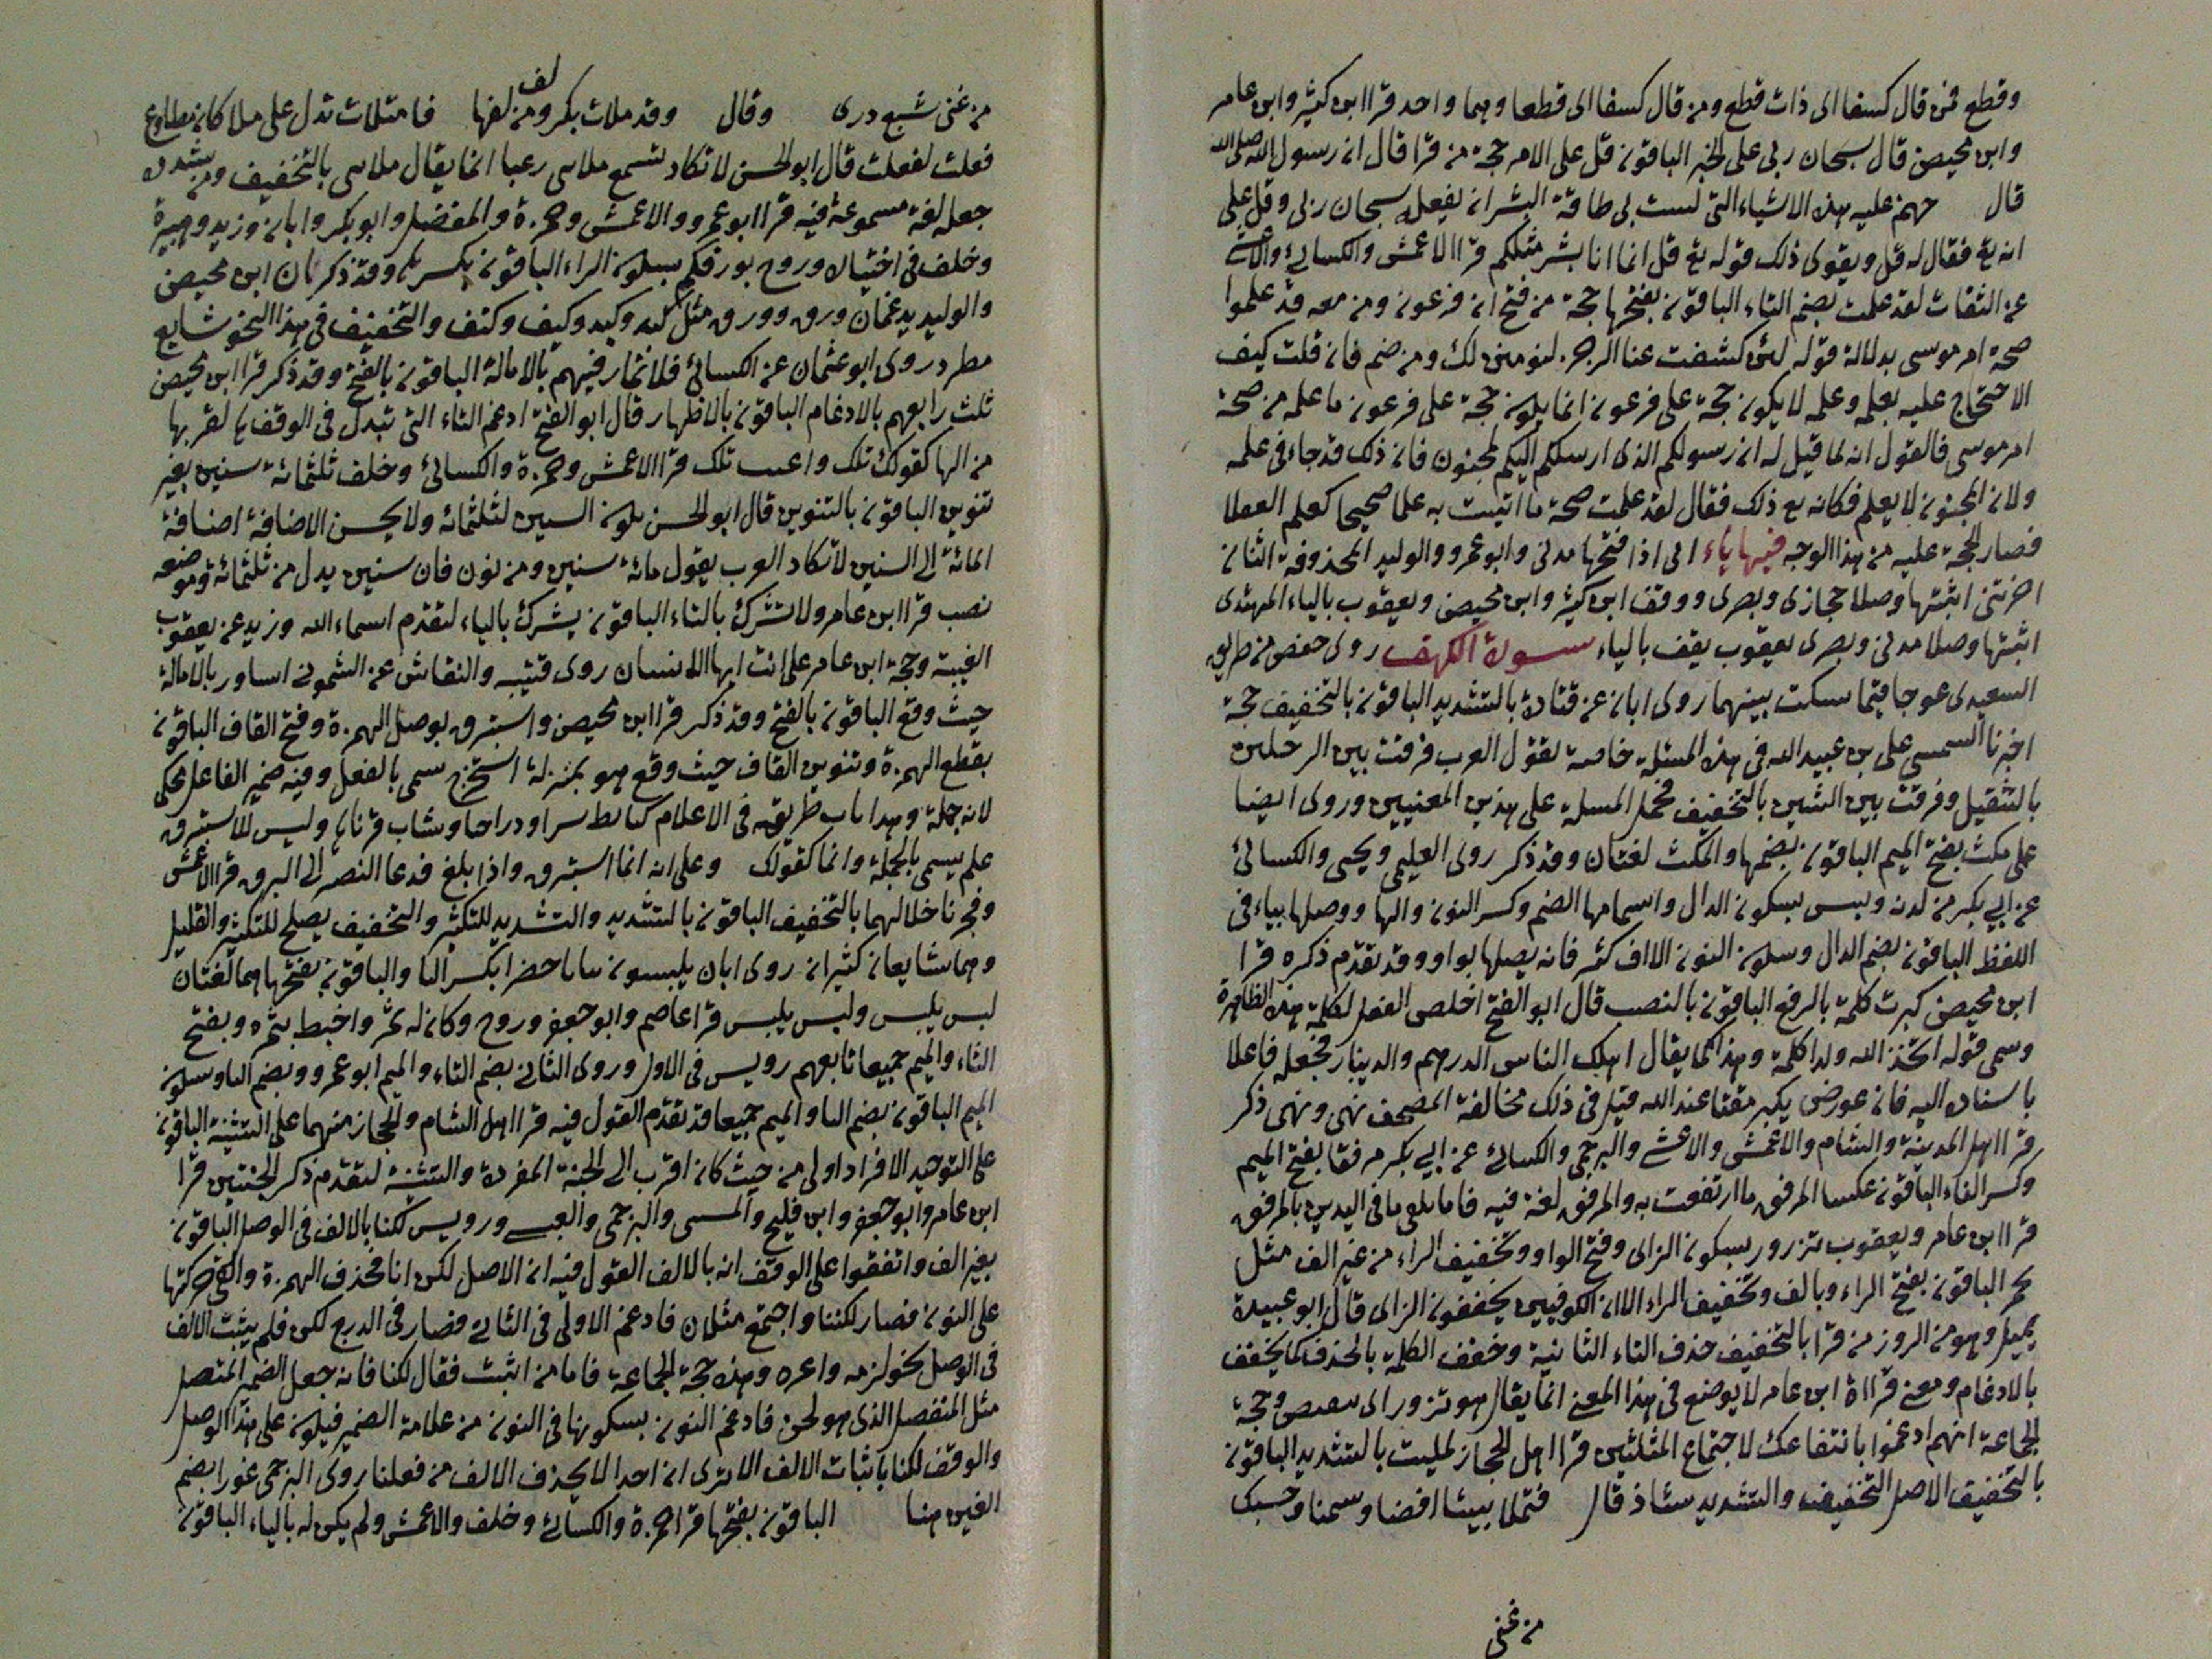 وقطع فمن قال كسفا اى ذات قطع ومن قال كسفا اى قطعا وهما واحد قرا ابن كثير وابن عامر
وابن محيصن قال سبحان ربى على الخبر الباقون قل على الامر حجة من قرا قال ان رسول الله صلى الله
قال عليه هذه الاشياء التى ليست بى طاقة البشر ان يفعله سبحان ربى وقل على
انه تع فقال له قل ويقوى ذلك قوله تع قل انما انا بشر مثلكم قرا الاعمش والكسائى والاعشى
عن الثقات لقد علمت بضم التاء الباقون بفتحها حجة من فتح ان فرعون ومن معه قد علموا
صحة امر موسى بدلالة قوله لئن كشفت عنا الرجز لنومنن لك ومن ضم فان قلت كيف
الاحتجاج عليه بعلمه وعلمه لا يكون حجة على فرعون انما يكون حجة على فرعون ما علمه من صحة
امر موسى فالقول انه لما قيل له ان رسولكم الذى ارسلكم اليكم لمجنون فان ذلك قدجاء فى علمه
ولان المجنون لا يعلم فكانه مع ذلك فقال لقد علمت صحة ما اتيت به علما صحيحا كعلم العقلا
فصار الحجة عليه من هذا الوجه فيها ياء اى اذا فتحها مدنى وابو عمرو والوليد المحذوفة اثنان
اخرتنى اثبتها وصلا حجازى وبصرى ووقف ابن كثير وابن محيصن ويعقوب بالياء المهتدى
اثبتها وصلا مدنى وبصرى يعقوب يقف بالياء سورة الكهف روى حفص من طريق
السعيدى عوجا قيما سكت بينهما روى ابان عن قتادة بالتشديد الباقون بالتخفيف حجة
اخبرنا على بن عبيد الله فى هذه المسئلة خاصة لقول العرب فرقت بين الرجلين
بالتثقيل وفرقت بين الشيئين بالتخفيف فحمل المسلة على هذين المعنيين وروى ايضا
على مكث بفتح الميم الباقون بضمها والمكث لغتان وقد ذكر روى العليمى ويحيى والكسائى
عن ابى بكر من لدنه وليس بسكون الدال واسمامها الضم وكسر النون والها ووصلها بياء فى
اللفظ الباقون بضم الدال وسكون النون الا ان كثير فانه يصلها بواو وقد تقدم ذكره قرا
ابن محيصن كبرت كلمة بالرفع الباقون بالنصب قال ابو الفتح اخلص الفعل لكلمة هذه الظاهرة
وسمى قوله اتخذ الله ولدا كلمة وهذا كما يقال اهلك الناس الدرهم والدينار فجعله فاعلا
باسناده اليه فان عورض بكبر مقتا عند الله قيل فى ذلك مخالفة المصحف نهى ونهى ذكر
قرا اهل المدينة والشام والاعمش والاعشى والبرجمى والكسائى عن ابى بكر مرفقا بفتح الميم
وكسر الفاء الباقون عكسا المرفق ما ارتفعت به والمرفق لغة فيه فاما فى اليدين بالمرفق
قرا ابن عامر ويعقوب تزور بسكون الزاى وفتح الواو وتخفيف الراء من غير الف مثل
تحمر الباقون بفتح الراء وبالف وتخفيف الراء الا ان الكوفيين يخففون الزاى قال ابو عبيدة
يميل وهو من الزور من قرا بالتخفيف حذف التاء الثانية وخفف الكلمة بالحذف كما يخفف
بالادغام ومعنى قراءة ابن عامر لا يوضع فى هذا المعنى انما يقال هو تزور اى وحجة
الجماعة انهم ادغموا لاجتماع المثلين قرا اهل الحجاز لملئت بالتشديد الباقون
بالتخفيف الاصل التخفيف والتشديد شاذ قال فتملا بيتنا اقضا وسمنا وحسبك
من غنى
من غنى شبع درى وقال وقد ملات بكر ومن لفها لف فامتلات تدل على ملا كان مطاوع
فعلت لفعلت قال ابو الحسن لا تكاد تسمع ملانى رعبا انما يقال ملانى بالتخفيف ومن شدده
جعله لغة مسموعة فيه قرا ابو عمرو والاعمش وحمزة والمفضل وابو بكر وابان وزيد وهبيرة
وخلف فى اختياره وروح بورقكم بسكون الراء الباقون بكسرها وقد ذكر ان ابن محيصن
والوليد يدغمان ورق وورق مثل كبد وكبد وكتف وكتف والتخفيف فى هذا النحو شايع
مطرد روى ابو عثمان عن الكسائى فلا تمار فيهم بالامالة الباقون بالفتح وقد ذكر قرا ابن محيصن
ثلث رابعهم بالادغام الباقون بالاظهار قال ابو الفتح ادغم الثاء التى تبدل فى الوقف ها لقربها
من الها كقولك تلك قرا الاعمش وحمزة والكسائى وخلف ثلثمائة سنين بغير
تنوين الباقون بالتنوين قال ابو الحسن يكون السنين لثلثمائة ولا يحسن الاضافة اضافة
المائة الى السنين لا تكاد العرب يقول مائة سنين ومن نون فان سنين بدل من ثلثمائة وموضعه
نصب قرا ابن عامر ولا تشرك بالتاء الباقون يشرك بالياء لتقدم اسماء الله وزيد عن يعقوب
الغيبة وحجة ابن عامر على انت ايها الانسان روى قتيبه والنقاش عن الشمونى اساور بالامالة
حيث وقع الباقون بالفتح وقد ذكر قرا ابن محيصن واستبرق بوصل الهمزة وفتح القاف الباقون
بقطع الهمزة وتنوين القاف حيث وقع هو بمنزلة استخرج سمى بالفعل وفيه ضمير الفاعل فحكى
لانه جملة وهذا باب طريقه فى الاعلام كتابط شرا وشاب قرناها وليس الاستبرق
علم يسمى بالجملة وانما كقولك وعلى انه انما استبرق واذا بلغ فدعا النصر الى البرق قرا الاعمش
وفجرنا خلالهما بالتخفيف الباقون بالتشديد والتشديد للتكثير والتخفيف يصلح للتكثير والقليل
وهما شايعان كثيران روى ابان يلبسون ثيابا خضرا بكسر البا والباقون بفتحها هما لغتان
لبس يلبس ولبس يلبس قرا عاصم وابو جعفر وروح وكان له ثمر واحيط بثمره وبفتح
الثاء والميم جميعا تابعهم رويس فى الاول وروى الثانى بضم الثاء والميم ابو عمرو وبضم الثا وسكون
الميم الباقون بضم الثا والميم جميعا قد تقدم القول فيه قرا اهل الشام والحجاز منهما على التثنية الباقون
على التوحيد الافراد اولى من حيث كان اقرب الى الجنة المفردة والتثنية لتقدم ذكر الجنتين قرا
ابن عامر وابو جعفر وابن فليح والبرجمى ورويس لكنا بالالف فى الوصل الباقون
بغير الف واتفقوا على الوقف انه بالالف القول فيه ان الاصل لكن انا فحذف الهمزة والقى حركتها
على النون فصار لكننا واجتمع مثلان فادغم الاولى فى الثانى فصار فى الدرج لكن فلم يثبت الالف
فى الوصل وهذه حجة الجماعة فاما من اثبت فقال لكنا فانه جعل الضمير المتصل
مثل المنفصل الذى هو لحن فادغم النون بسكونها فى النون من علامة الضمير فيكون على هذا الوصل
والوقف لكنا باثبات الالف الا ترى ان احدا لا يحذف الالف من فعلنا روى البرجمى غورا بضم
الغين هنا الباقون بفتحها قرا حمزة والكسائى وخلف والاعمش ولم يكن له بالياء الباقون